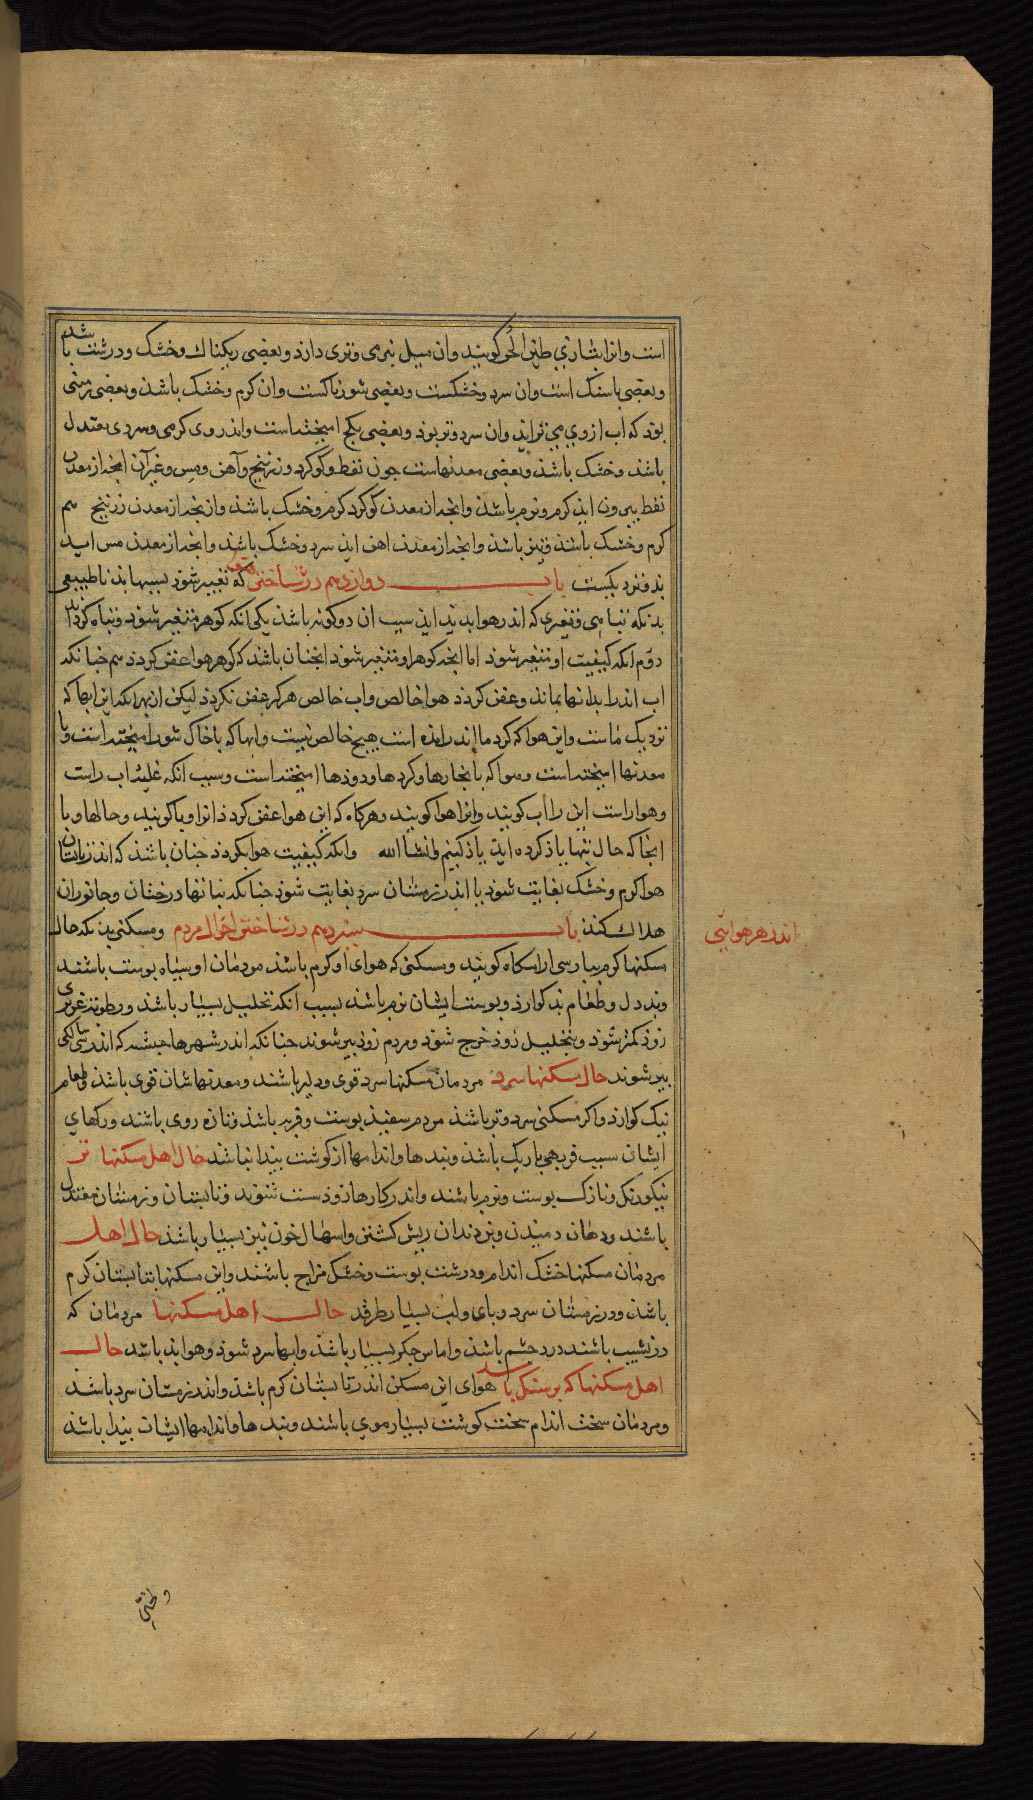 است وانرا بتازي طین الحُر کویند وان میل بنرمی وتری دارذ وبعضی ریکناك وخشک ودرشت باشد
وبعضی باسنک است وان سرد وخشکست وبعضی شورناکست وان کرم وخشک باشذ وبعضی زمینی
بوذ که اب ازوي می زاید وان سرد وتر بوذ وبعضی بکچ امیخته است واندر وی کرمی وسردی معتدل
باشذ وخشک باشذ وبعضی معدنهاست جون نفط وکوکرد وزرنیخ واهن ومس وغیر آن انجه از معدن
نفط بیرون ایذ کرم ونرم باشذ وانجه از معدن کوکرد کرم وخشک باشذ وانجه از معدن زرنیخ هم
کرم وخشک باشذ وتیز باشذ وانجه از معدن اهن ایذ سرد وخشک باشذ وانجه از معدن مس اید
بذ فنزدیکست باب دوازدهم در شناختن که تغییر شوذ بسببها نه ناطبیعی
بدنکه تباهی وتغیری که اندر هوا بدید ایذ سبب ان دو کونه باشذ یکی انکه کوهر متغیر شوذ وتباه کردد
دوّم انکه کیفیت او متغیر شوذ اما انجه کوهر او متغیر شوذ انجنان باشذ که کوهر هوا عفن کردذ هم جنانکه
اب اندر ابدانها بماند وعفن کردذ هوا خالص واب خالص هرکز عفن نکردذ لیکن از بهر انکه این ابها که
نزدیک ماست واین هوا که کرد ما اندر امذه است هیج خالص نیست وابها که باخاک شوره امیخته است ویا
معدنها امیخته است وهوا که بابخارها وکردها ودوذها امیخته است وسبب انکه غلبه اب راست
وهوا راست این را اب کویند وانرا هوا کویند وهرکاه که این هوا عفن کردذ انرا وبا کویند وحالها وبا
انجا که حال تبها یاذ کرده اید یاذ کنیم وانشاالله وانکه کیفیت هوا بکردذ جنان باشذ که اندر تابستان
هوا کرم وخشک بغایت شوذ یا اندر زمستان سرد بغایت شوذ جنانکه نباتها درختان وجانوران
هلاك کنذ باب سیزدهم در شناختن احوال مردم ومسکنی بدنکه حال
اندر هر هوایی
مسکنها کرم بپارسی ارامکاه کویند ومسکنی که هوای او کرم باشذ مردمان او سیاه بوست باشند
وبددل وطعام بدکوارذ وبوست ایشان نرم باشذ بسبب انکه تحلیل بسیار باشذ ورطوبت غریزی
زوذ کمتر شوذ وبتحلیل زوذ خرج شوذ ومردم زوذ بیر شوند جنانکه اندر شهرها حبشه که اندر سی سالکی
بیر شوند حال مسکنها سرد مردمان مسکنها سرد قوی ودلیر باشند ومعدتهاشان قوی باشذ وطعام
نیک کوارذ واکر مسکنی سرد وتر باشذ مردم سفیذ بوست وفربه باشذ وتازه روی باشند ورکهاي
ایشان سبب فربهی باریک باشذ وبندها واندامها از کوشت بیدا نباشد حال اهل مسکنها تر
نیکورنک ونازک بوست ونرم باشند واندر کارها زوذ سست شوند وتابستان وزمستان معتدل
باشند ودهان دمیدن وبن دندان ریش کشتن واسهال خون نیز بسیار باشذ حال اهل
مردمان مسکنها خشک اندام ودرشت بوست وخشک مزاج باشند واین مسکنها بتابستان کرم
باشذ ودر زمستان سرد وبای ولب بسیار بطرقد حال اهل مسکنها مردمان که
در نشیب باشند درد جشم باشذ واماس جکر بسیار باشذ وابها سرد شوذ وهوا بد باشد حال
اهل مسکنها که بر سنکل باشد هوای این مسکن اندر تابستان کرم باشذ واندر زمستان سرد باشد
ومردمان سخت اندام سخت کوشت بسیار موی باشند وبندها واندامها ایشان بیدا باشذ